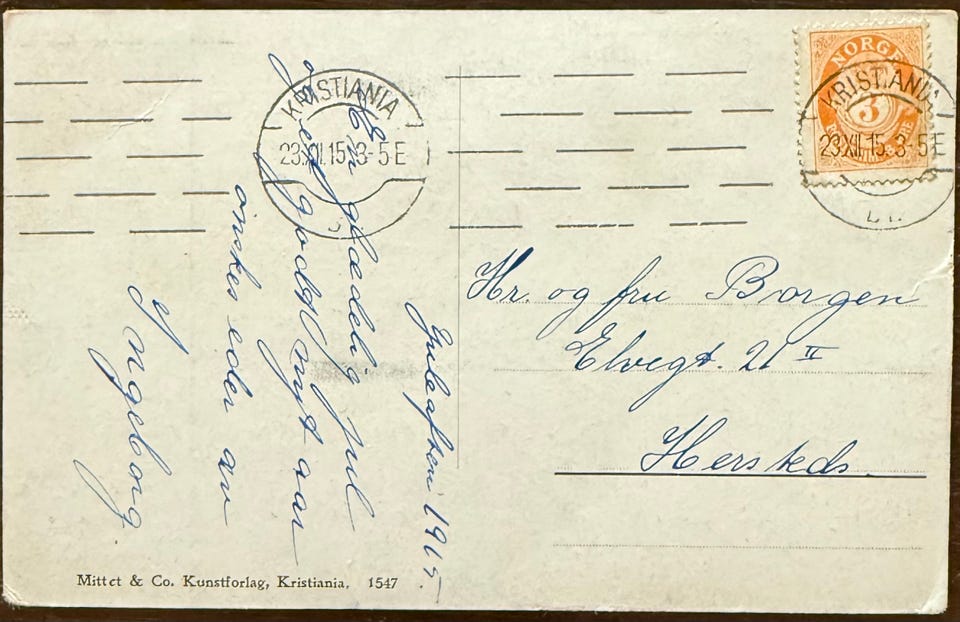 Juleaften 1915.
En glædelig jul
og et godt nyt aar
ønskes eder av
Ingeborg
KRISTIANIA
23XII.15.3-5E
NORGE
3
KRISTIANIA
23XII.15.3-5E
Hr. og fru Borgen
Elvegt. 21 II
Hersteds.
Mittet & Co. Kunstforlag, Kristiania. 1547